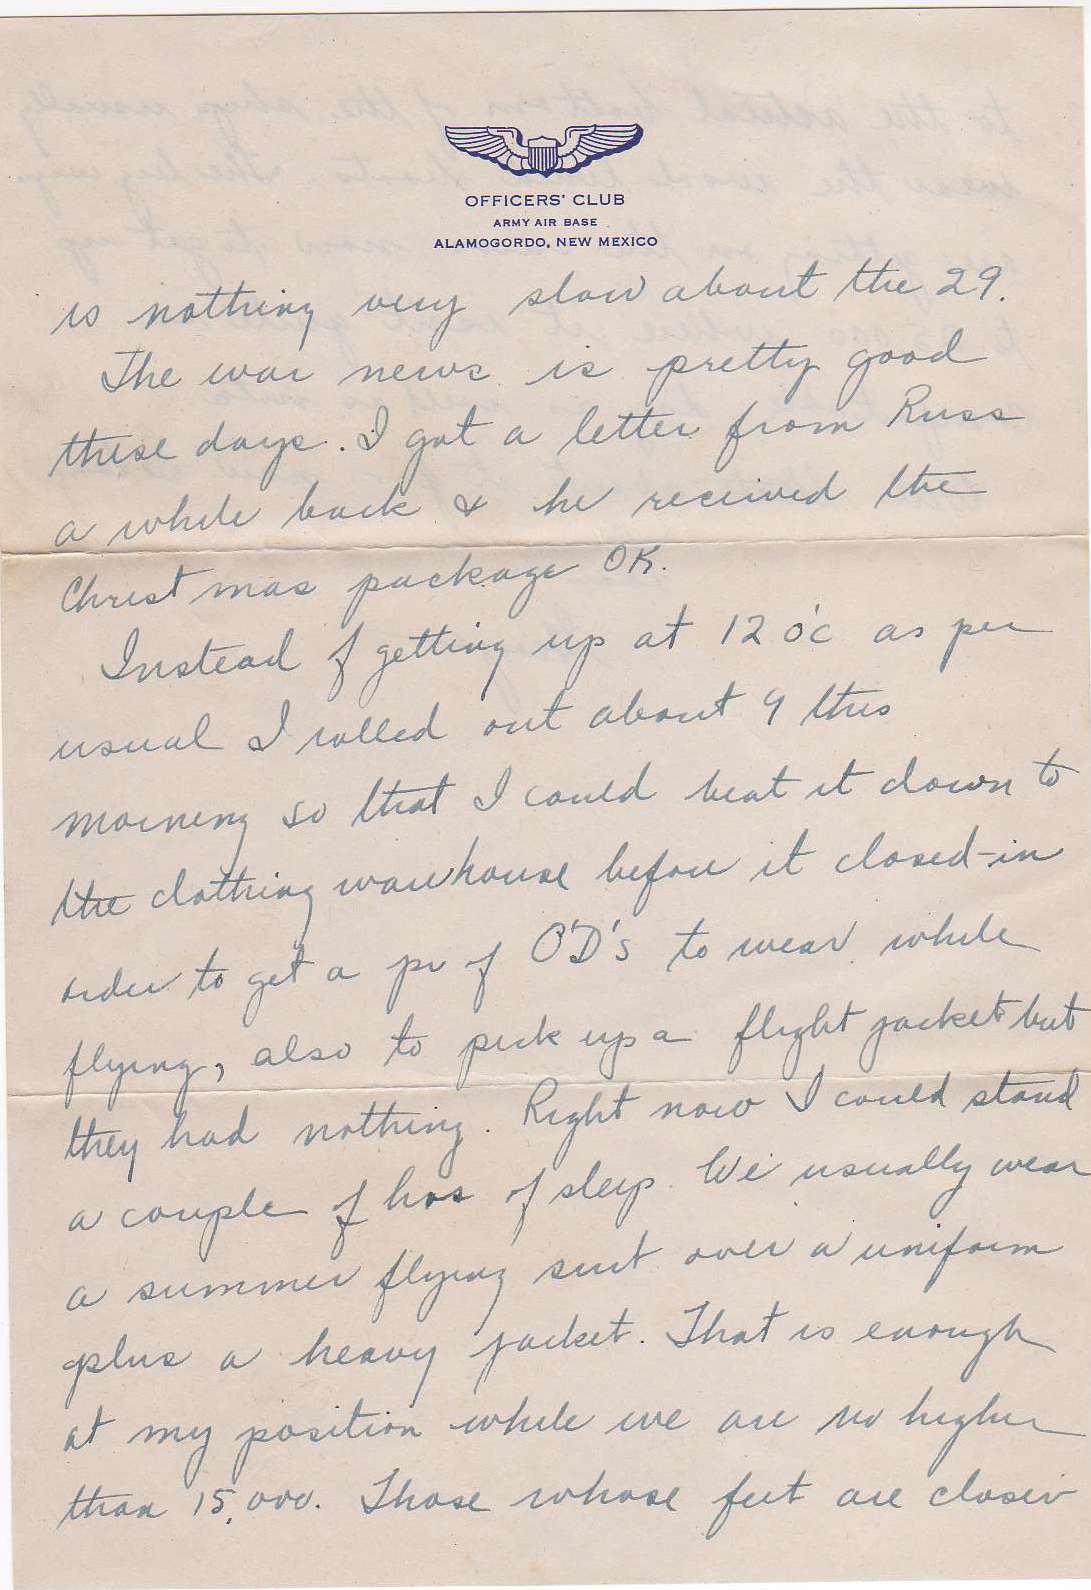 OFFICERS' CLUB
ARMY AIR BASE
ALAMOGORDO, NEW MEXICO
is nothing very slow about the 29.
The war news is pretty good
these days. I got a letter from Russ
a while back & he received the
Christmas package OK.
Instead of getting up at 12 o'c as per
usual I rolled out about 9 this
morning so that I could beat it down to
the clothing warehouse before it closed-in
order to get a pr of O'D's to wear while
flying, also to pick up a flight jacket but
they had nothing. Right now I could stand
a couple of hrs of sleep. We usually wear
a summer flying suit over a uniform
plus a heavy jacket. That is enough
at my position while we are no higher
than 15,000. Those whose feet are closer